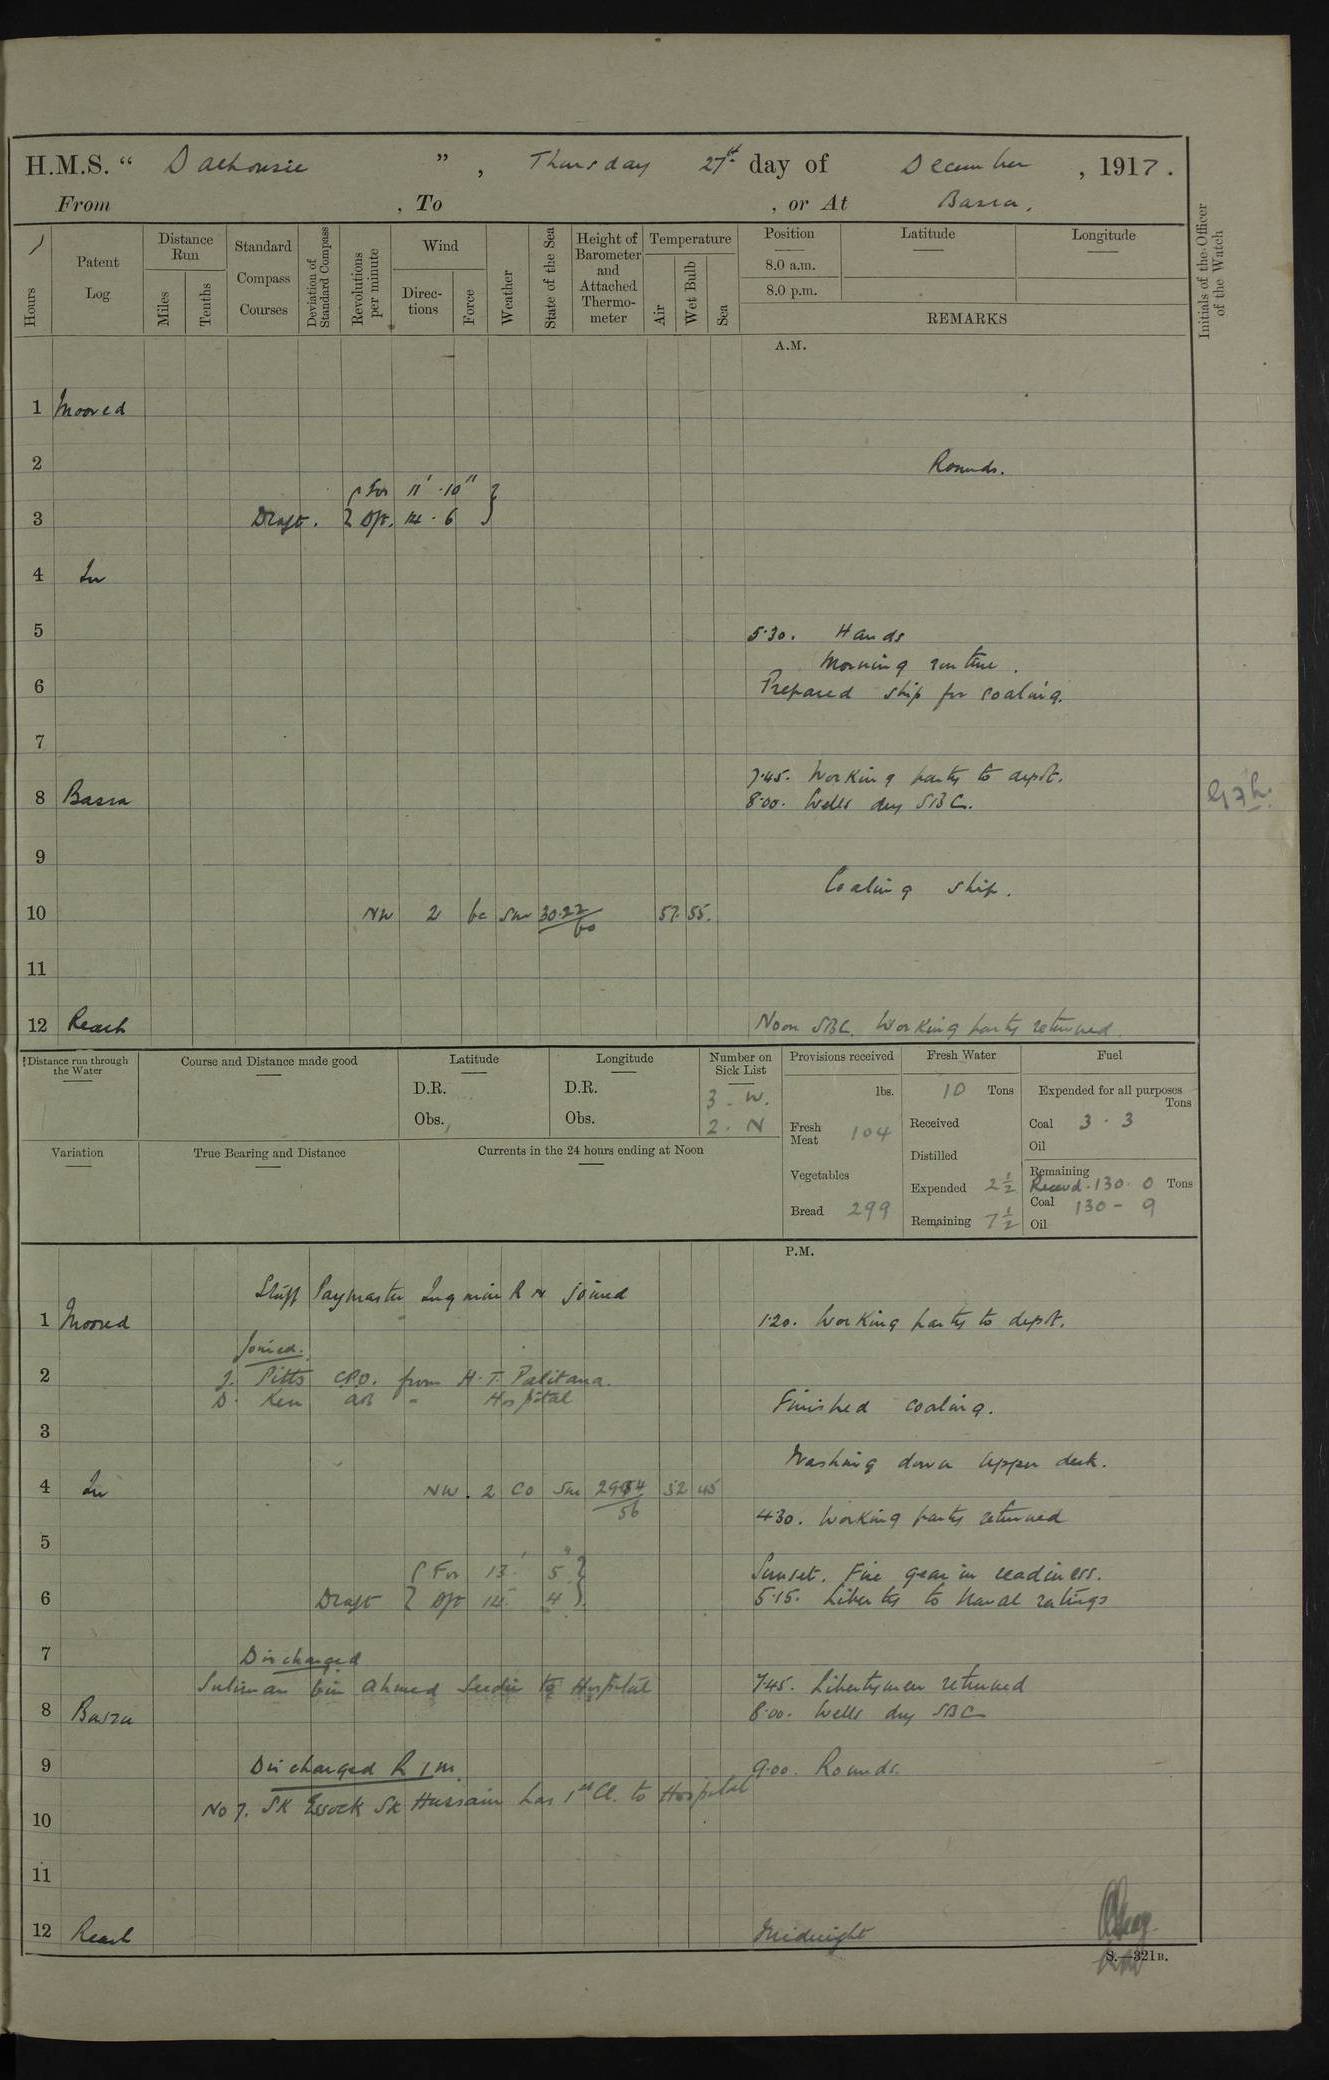 H.M.S. “ Dalhousie ”, Thursday 27th day of December, 1917.
From , To , or At Basra.
Hours
Patent Log
Distance Run
Miles
Tenths
Standard Compass Courses
Deviation of Standard Compass
Revolutions per minute
Wind
Directions
Force
Weather
State of the Sea
Height of Barometer and Attached Thermometer
Temperature
Air
Wet Bulb
Sea
Position
8.0 a.m.
8.0 p.m.
Latitude
Longitude
REMARKS
Initials of the Officer of the Watch
A.M.
1 Moored
2 Rounds.
For 11' . 10"
3 Draft. Aft. 14 . 6
4 In
5 5.30. Hands
Morning routine.
6 Prepared ship for coaling.
7
7.45. Working party to depôt.
8 Basra 8.00. Wells dry SBC.
9
Coaling ship.
10 NW 2 bc Sm 30.22/60 57. 55.
11
12 Reach Noon SBC. Working party returned.
Distance run through the Water
Course and Distance made good
Latitude
D.R.
Obs.
Longitude
D.R.
Obs.
Number on Sick List
3 - W.
2. N
Provisions received
lbs.
Fresh Meat 104
Vegetables
Bread 299
Fresh Water
10 Tons
Received
Distilled
Expended 2½
Remaining 7½
Fuel
Expended for all purposes
Tons
Coal 3 . 3
Oil
Remaining
Received . 130 . 0 Tons
Coal 130 - 9
Oil
Variation
True Bearing and Distance
Currents in the 24 hours ending at Noon
P.M.
Staff Paymaster RN joined
1 Moored 1.20. Working party to depôt.
Joined.
2 J. Pitts C.P.O. from H.T. Palitana.
D. Ken AB " Hospital
Finished coaling.
3
Washing down upper deck.
4 In NW. 2 Co Sm /56 52 45
4.30. Working party returned
5
For 13' 5"
Sunset. Fire gear in readiness.
6 Draft Aft 14 4
5.15. Liberty to Naval ratings
7 Discharged
Suliman bin Ahmed Seedie to Hospital
7.45. Libertymen returned
8 Basra 8.00. Wells dry SBC
9 Discharged R I M. 9.00. Rounds.
No 7. SK Essock SK Hussain Las 1st Cl. to Hospital
10
11
12 Reach Midnight
S.—321B.